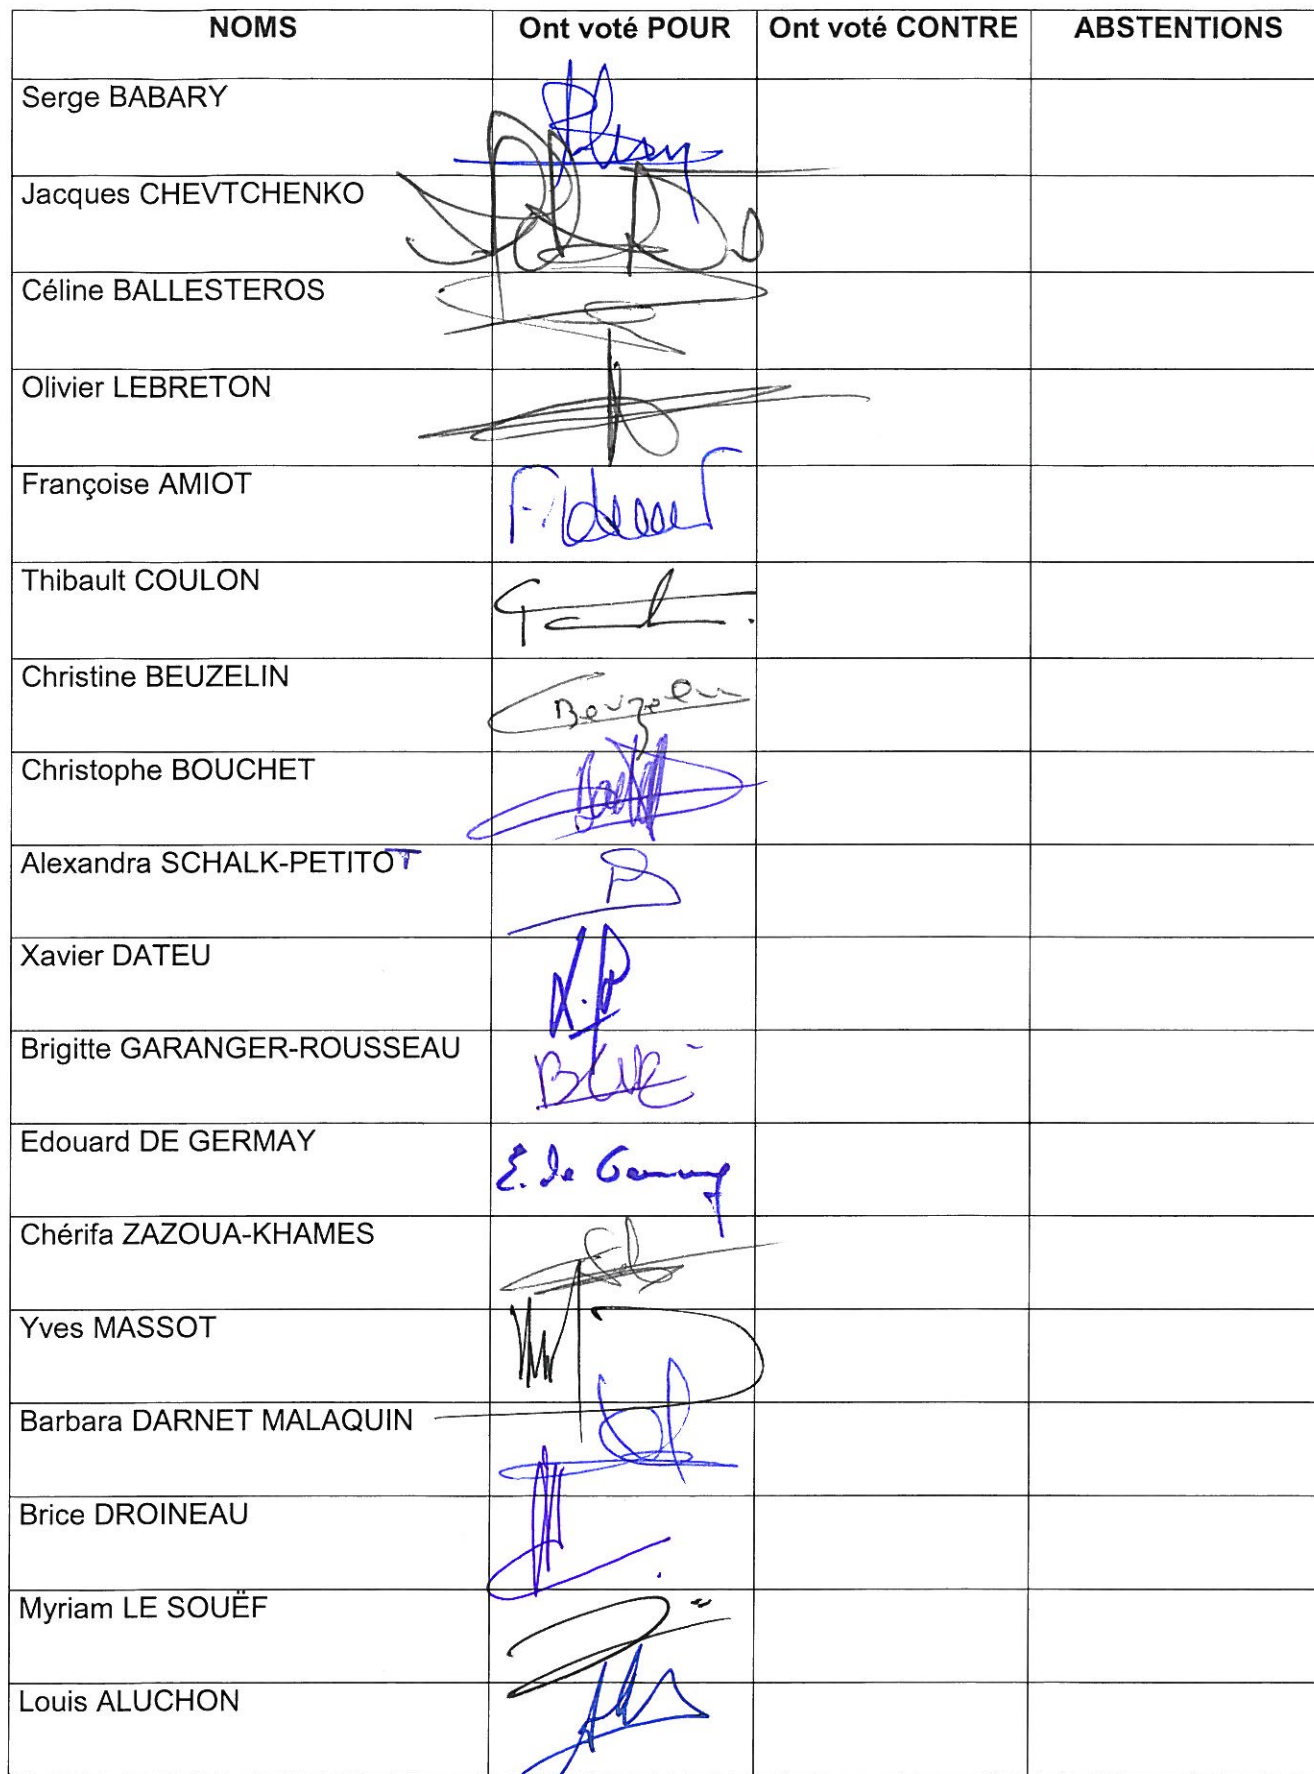 NOMS Ont voté POUR Ont voté CONTRE ABSTENTIONS
Serge BABARY
Jacques CHEVTCHENKO
Céline BALLESTEROS
Olivier LEBRETON
Françoise AMIOT
Thibault COULON
Christine BEUZELIN Beuzelin
Christophe BOUCHET
Alexandra SCHALK-PETITOT
Xavier DATEU
Brigitte GARANGER-ROUSSEAU
Edouard DE GERMAY E. de Germay
Chérifa ZAZOUA-KHAMES
Yves MASSOT
Barbara DARNET MALAQUIN
Brice DROINEAU
Myriam LE SOUËF
Louis ALUCHON